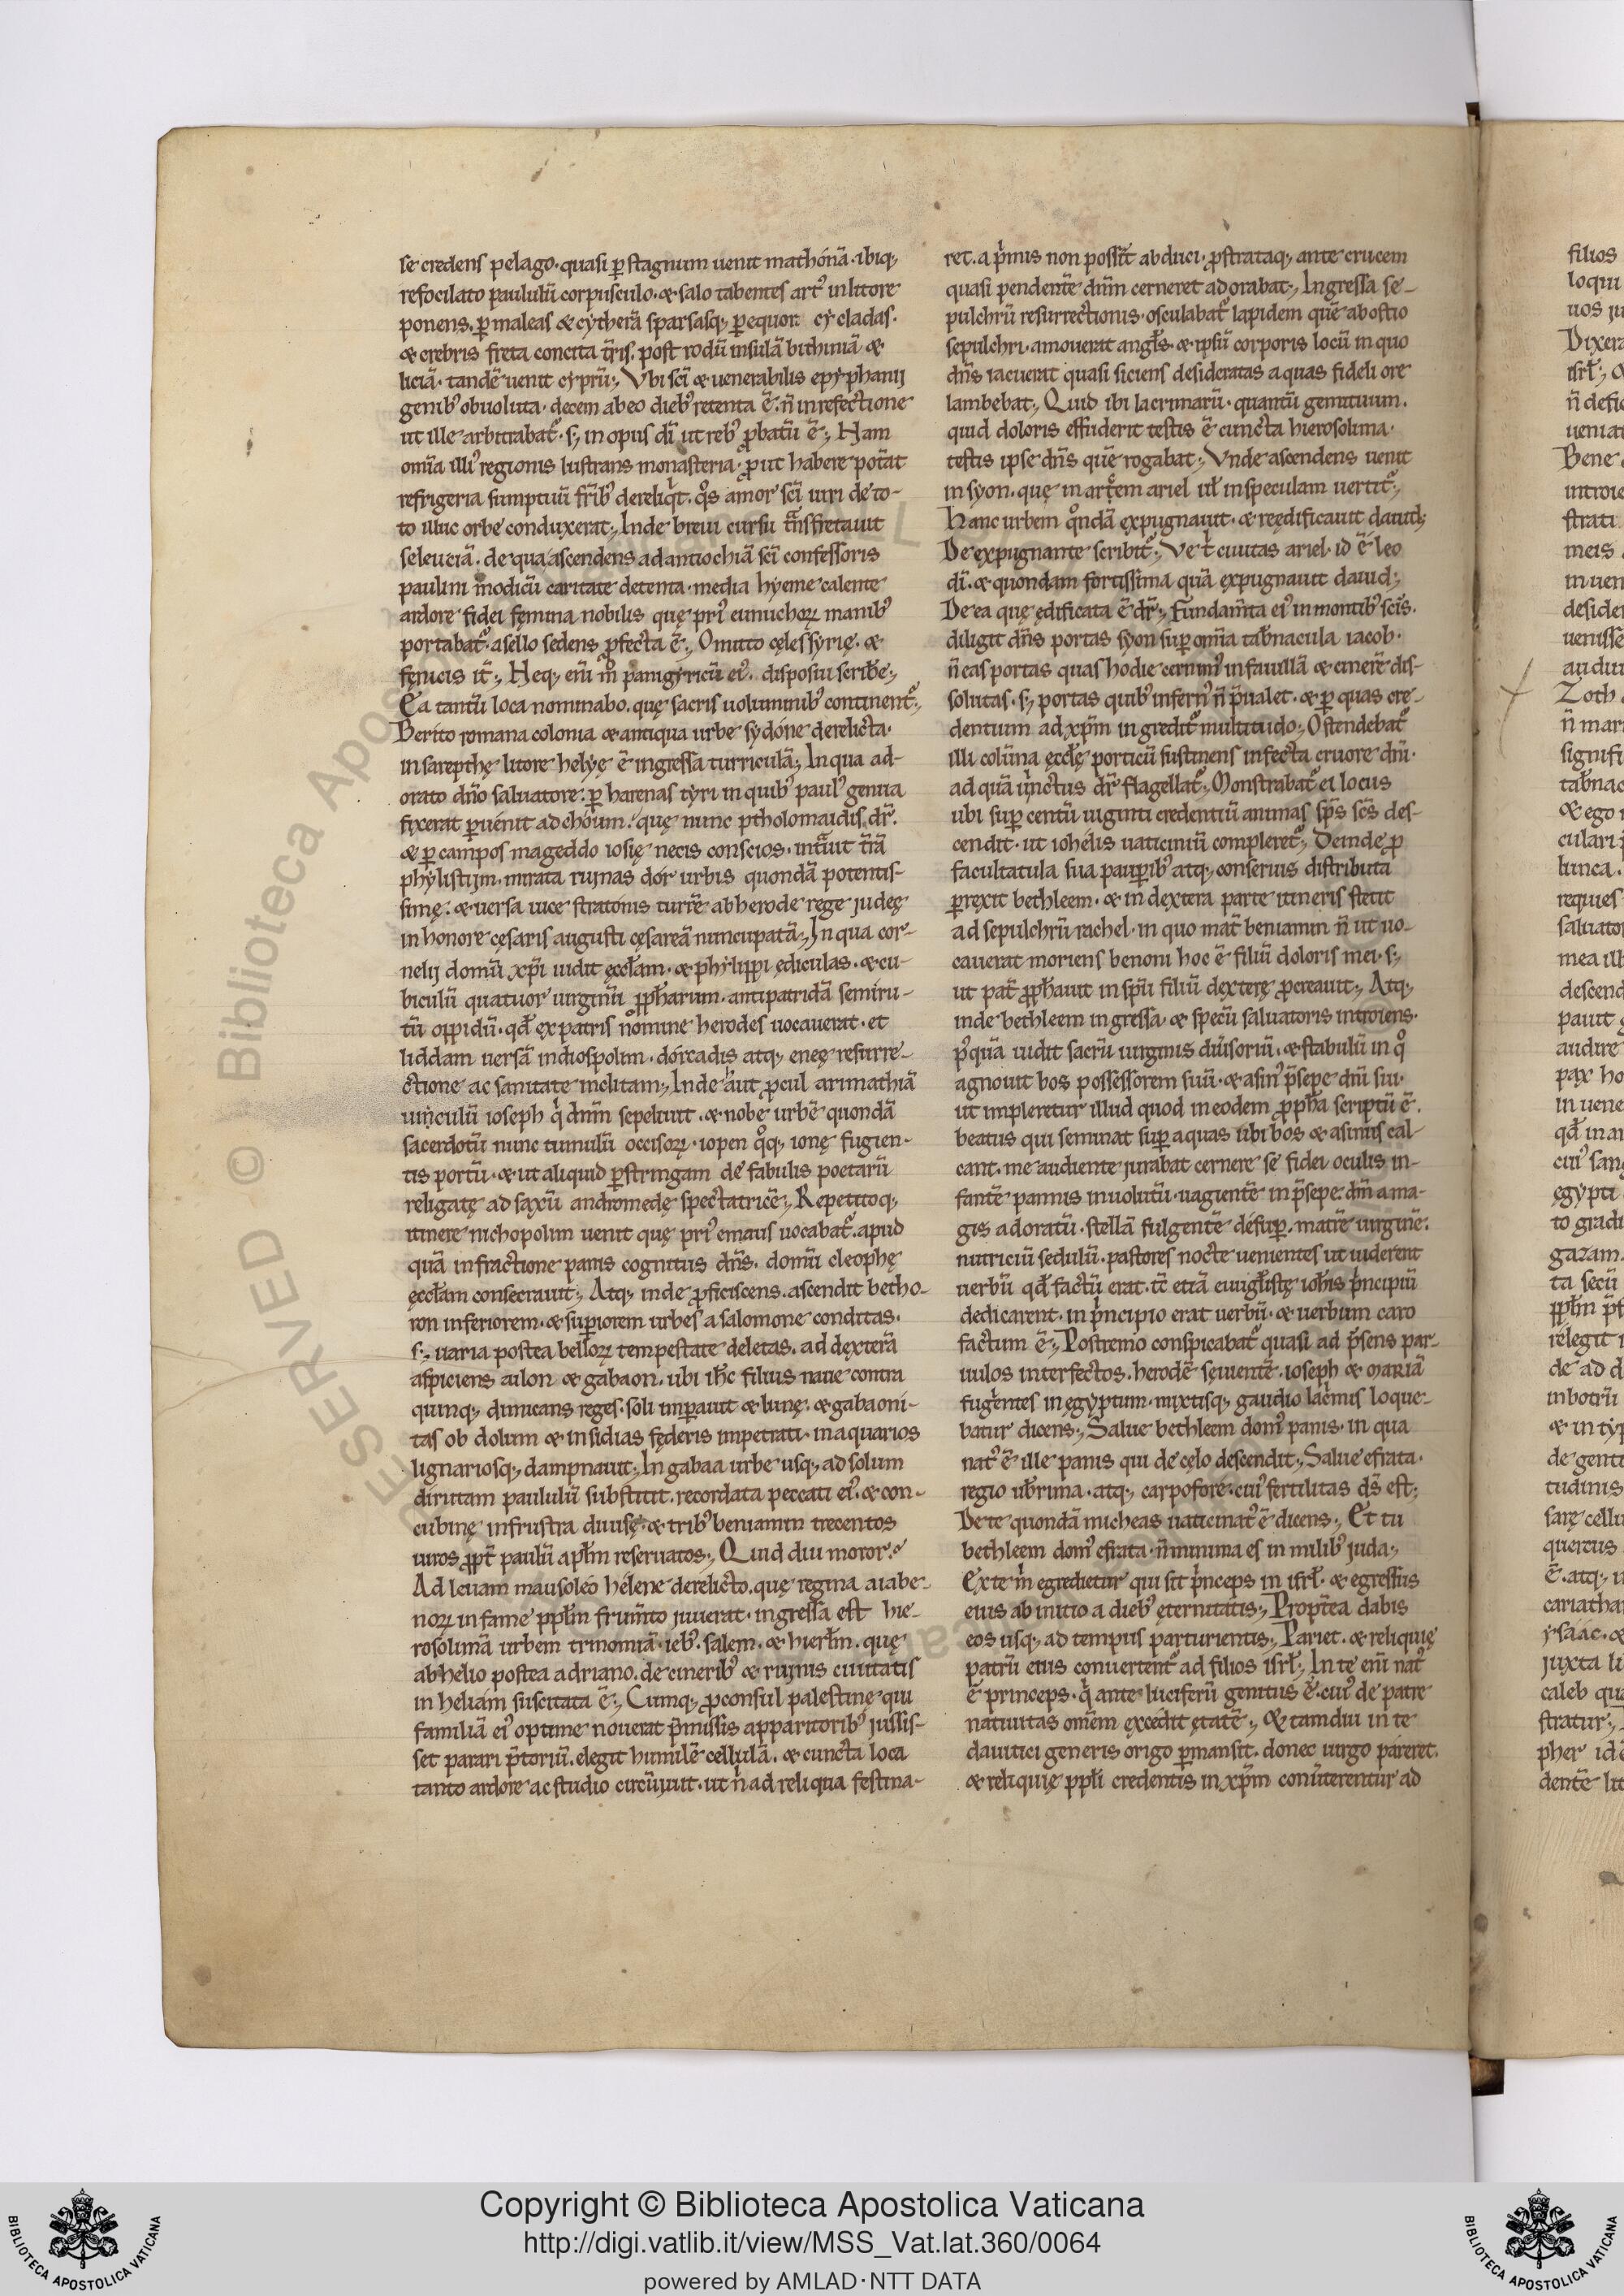 se credens pelago. quasi ꝑ stagnum uenit mathónā. ibiq;
refocilato paululū corpusculo. & salo tabentes art᷒ in litore
ponens. ꝑ maleas & cytherā sparsasq; ꝑ equor cycladas.
& crebris freta concita t̄ris. post rodū insulā bithiniā &
liciā. tandē uenit cyprū; Vbi sc̄i & uenerabilis epyphanij
genib᷒ obuoluta. decem ab eo dieb᷒ retenta ē. n̄ in refectione
ut ille arbitrabat᷒. s; in opus dī ut reb᷒ ꝓbatū ē; Nam
om̄ia illi᷒ regionis lustrans monasteria. ꝓut habere pot̄at
refrigeria sumptuū fr̄ib᷒ dereliq͛t. qͦs amor sc̄i uiri de to-
to illuc orbe conduxerat; Inde breui cursu tᷓnsfretauit
seleuciā. de qua ascendens ad antiochiā sc̄i confessoris
paulini modicū caritate detenta. media hyeme calente
ardore fidei fęmina nobilis quę pri᷒ eunuchoꝝ manib᷒
portabat᷒. asello sedens ꝓfecta ē; Omitto cęlessyrię. &
fęnicis it̄; Neq; eni̅ mͦ panigyricū ei᷒. disposui scrib̄e;
Ea tantū loca nominabo. quę sacris uoluminib᷒ continent᷒;
Berito romana colonia & antiqua urbe sydóne derelicta.
in sarepthę litore helyę ē ingressa turriculā; In qua ad-
orato dn̄o saluatore. ꝑ harenas tyri in quib᷒ paul᷒ genua
fixerat ꝑuénit ad chóum. quę nunc ptholomaidis dr̄.
& ꝑ campos mageddo iosię necis conscios. intᷓuit t̄rā
phylistijm. mirata ruinas dor urbis quondā potentis-
simę. & uersa uice stratonis turrē ab herode rege judeę
in honore cęsaris augusti cęsareā nuncupatā; In qua cor-
nelij domū xp̄i uidit ęccłam. & phylippi ędiculas. & cu-
biculū quatuor uirginū ꝓph̄arum. antipatridā semiru-
tū oppidū. qd̄ ex patris nomine herodes uocauerat. et
liddam uersā in diospolim. dórcadis atq; eneę resurre-
ctione ac sanitate inclitam; Inde haut ꝓcul arimathiā
uinculū ioseph q͛ dn̄m sepeliuit. & nobe urbē quondā
sacerdotū nunc tumulū occisoꝝ. iopen qͦq; ionę fugien-
tis portū. & ut aliquid ꝑstringam de fabulis poetarū
religatę ad saxū andromedę spectatricē; Repetitoq;
itinere nichopolim uenit quę pri᷒ emaus uocabat᷒. apud
quā in fractione panis cognitus dn̄s. domū cleophę
ęccłam consecrauit; Atq; inde ꝓficiscens. ascendit betho-
ron inferiorem. & suꝑiorem urbes a salomone conditas.
s; uaria postea belloꝝ tempestate deletas. ad dexterā
aspiciens ailon & gabaon. ubi ih̄c filius naue contra
quinq; dimicans reges. soli imꝑauit & lunę. & gabaoni-
tas ob dolum & insidias fęderis impetrati. in aquarios
lignariosq; dampnauit; In gabaa urbe usq; ad solum
dirutam paululū substitit. recordata peccati ei᷒. & con-
cubinę in frustra diuisę. & trib᷒ beniamin trecentos
uiros ꝓpt̄ paulū apłm reseruatos; Quid diu moror?
Ad leuam mausoléo hélene derelicto. quę regina aiabe-
noꝝ in fame ppłm frum̄to iuuerat. ingressa est hie-
rosolimā urbem trinomiā. ieb᷒. salem. & hierłm. quę
ab helio postea adriano. de cinerib᷒ & ruinis ciuitatis
in heliam suscitata ē; Cumq; ꝓconsul palestinę qui
familiā ei᷒ optime nouerat p̄missis apparitorib᷒ jussis-
set parari p̄toriū. elegit humilē cellulā. & cuncta loca
tanto ardore ac studio circūiuit. ut n͛ ad reliqua festina-
ret. a p͛mis non possit abduci. ꝓstrataq; ante crucem
quasi pendentē dn̄m cerneret adorabat; Ingressa se-
pulchrū resurrectionis. osculabat᷒ lapidem quē ab ostio
sepulchri amouerat angłs. & ipsū corporis locū in quo
dn̄s iacuerat quasi siciens desideratas aquas fideli ore
lambebat; Quid ibi lacrimarū. quantū gemituum.
quid doloris effuderit testis ē cuncta hierosolima.
testis ipse dn̄s quē rogabat; Vnde ascendens uenit
in syon. quę in artēm ariel uł in speculam uertit᷒;
hanc urbem qͦndā expugnauit. & reędificauit dauid;
De expugnante scribit᷒; Ve t͛ ciuitas ariel. id ē leo
dī. & quondam fortissima quā expugnauit dauid;
De ea quę ędificata ē dr̄; Fundam̄ta ei᷒ in montib᷒ sc̄is.
diligit dn̄s portas syon suꝑ om̄ia tab̄nacula iacob.
n̄ eas portas quas hodie cernim᷒ in fauillā & cinerē dis-
solutas. s; portas quib᷒ infern᷒ n̄ p̄ualet. & ꝑ quas cre-
dentium ad xp̄m ingredit᷒ multitudo; Ostendebat᷒
illi colūna ęccłę porticū sustinens infecta cruore dn̄i.
ad quā uinctus dr̄ flagellat᷒; Monstrabat᷒ ei locus
ubi suꝑ centū uiginti credentiū animas sp̄s sc̄s des-
cendit. ut iohélis uaticiniū compleret᷒; Deinde ꝓ
facultatula sua pauꝑib᷒ atq; conseruis distributa
ꝑrexit bethleem. & in dextera parte itineris stetit
ad sepulchrū rachel. in quo mat̄ beniamin n̄ ut uo-
cauerat moriens benoni hoc ē filiū doloris mei. s;
ut pat̄ ꝓph̄auit in sp̄u filiū dexterę ꝓcreauit; Atq;
inde bethleem ingressa. & specū saluatoris introiens.
p᷒quā uidit sacrū uirginis diu͛soriū. & stabulū in qͦ
agnouit bos possessorem suū. & asin᷒ p̄sepe dn̄i sui.
ut impleretur illud quod in eodem ꝓph̄a scriptū ē.
beatus qui seminat suꝑ aquas ubi bos & asinus cal-
cant. me audiente jurabat cernere se fidei oculis in-
fantē pannis inuolutū. uagientē in p̄sepe. dn̄m a ma-
gis adoratū. stellā fulgentē désuꝑ. matrē uirginē.
nutriciū sedulū. pastores nocte uenientes ut uiderent
uerbū qd̄ factū erat. t̄c etiā euuigłistę ioh̄is p͛ncipiū
dedicarent. in p͛ncipio erat uerbū. & uerbum caro
factum ē; Postremo conspicabat᷒ quasi ad p̄sens par-
uulos interfectos. herodē sęuientē. ioseph & mariā
fugientes in ęgyptum. mixtisq; gaudio lac͛mis loque-
batur dicens; Salue bethleem dom᷒ panis. in qua
nat᷒ ē ille panis qui de cęlo descendit; Salue efrata.
regio ub̄rima. atq; carpofore. cui᷒ fertilitas ds̄ est;
De te quondā micheas uaticinat᷒ ē dicens; Et tu
bethleem dom᷒ efrata. n̄ minima es in milib᷒ juda;
Ex te m͛ egredietur qui sit p͛nceps in isrł. & egressus
eius ab initio a dieb᷒ ęternitatis; Propt̄ea dabis
eos usq; ad tempus parturientis; Pariet. & reliquię
patrū eius conuertent᷒ ad filios isrł; In te eni̅ nat᷒
ē princeps. q͛ ante luciferū genitus ē. cui᷒ de patre
natiuitas om̄em excedit ętatē; & tamdiu in te
dauitici generis origo ꝑmansit. donec uirgo pareret.
& reliquię ppłi credentis in xp̄m conu͛terentur ad
filios
loqui
Dixera
Bene
introie
strati
meis
in uen
desider
uenisse
audiu
Zoth
n̄ mar
signifi
tab̄nac
& ego
culari
lunca.
reques
saluator
mea ill
descend
pauit
audire
pax ho
in uene
qd̄ in ar
cui᷒ sang
ęgypti
to gradi
gazam.
ta secū
rélegit
de ad d
in botrū
& in typ
de genti
tudinis
sarę cellu
quercus
ē. atq; u
cariathar
ysáác. &
juxta
caleb qua
stratur;
pher idē
dentē
Copyright © Biblioteca Apostolica Vaticana
http://digi.vatlib.it/view/MSS_Vat.lat.360/0064
powered by AMLAD·NTT DATA
BIBLIOTECA APOSTOLICA VATICANA
BIBLIOTECA APOSTOLICA VATICANA